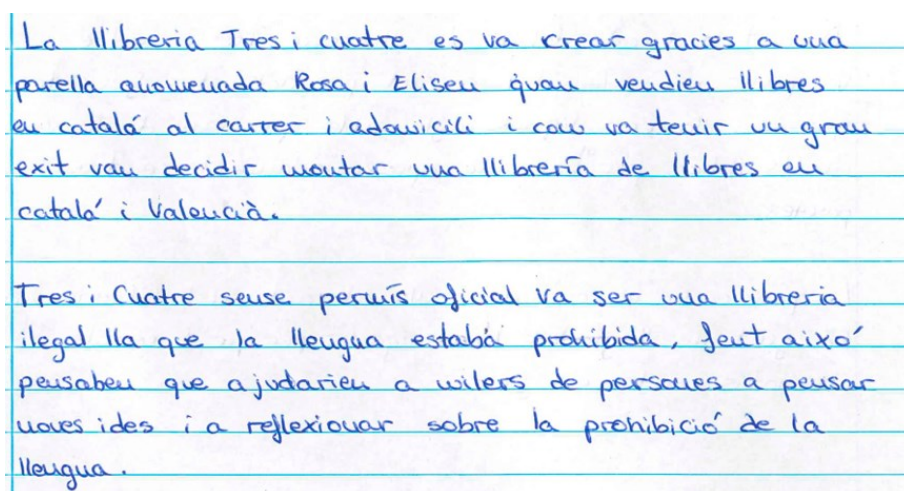 La llibreria Tres i cuatre es va crear gracies a una
parella anomenada Rosa i Eliseu quan vendien llibres
en catalá al carrer i adomicili i com va tenir un gran
exit van decidir montar una llibrería de llibres en
catalá i Valencià.
Tres i Cuatre sense permís oficial va ser una llibreria
ilegal lla que la llengua estabà prohibida, fent aixó
pensaben que ajudarien a milers de persones a pensar
noves ides i a reflexionar sobre la prohibició de la
llengua.